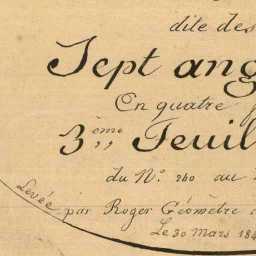 dite des
Sept ang
En quatre
3ème Feuil
du N° 260 au
Levée par Roger Géomètre
Le 30 Mars 184